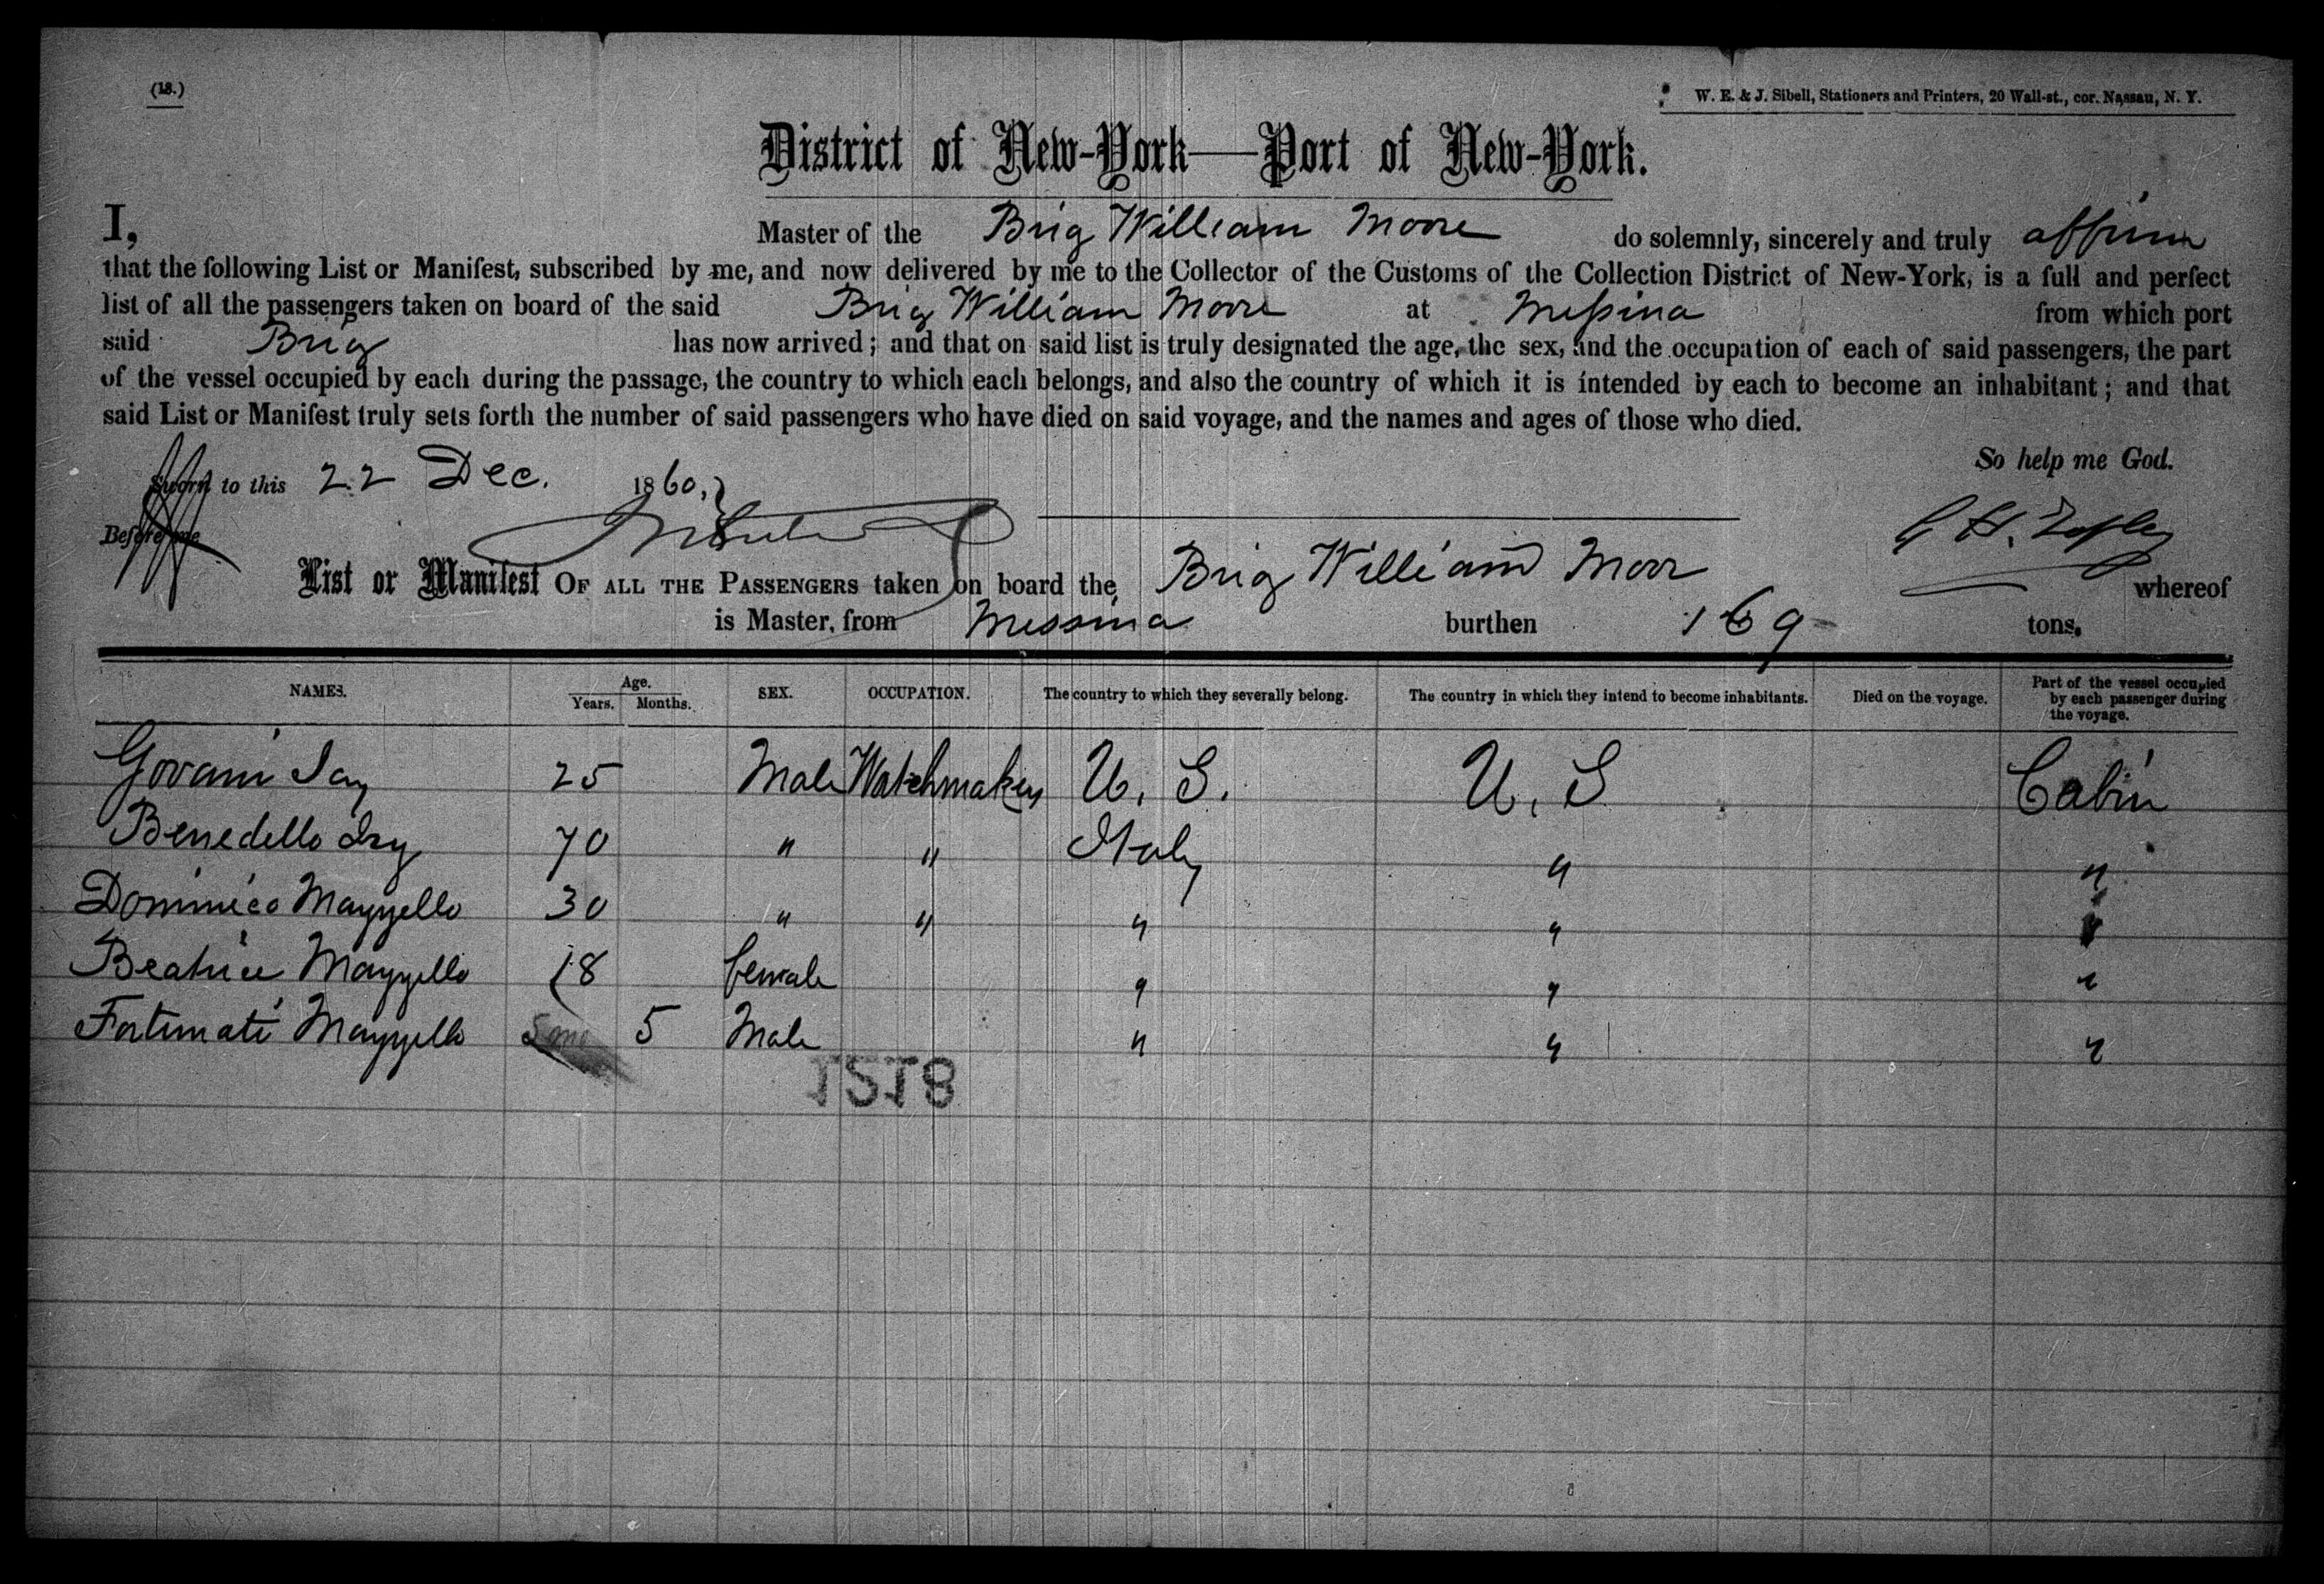 (18.)
W. E. & J. Sibell, Stationers and Printers, 20 Wall-st., cor. Nassau, N. Y.
District of New-York—Port of New-York.
I, Master of the Brig William Moore do solemnly, sincerely and truly affirm
that the following List or Manifest, subscribed by me, and now delivered by me to the Collector of the Customs of the Collection District of New-York, is a full and perfect
list of all the passengers taken on board of the said Brig William Moore at Messina from which port
said Brig has now arrived; and that on said list is truly designated the age, the sex, and the occupation of each of said passengers, the part
of the vessel occupied by each during the passage, the country to which each belongs, and also the country of which it is intended by each to become an inhabitant; and that
said List or Manifest truly sets forth the number of said passengers who have died on said voyage, and the names and ages of those who died.
So help me God.
Sworn to this 22 Dec. 1860,
Before me
List or Manifest OF ALL THE PASSENGERS taken on board the Brig William Moor whereof
is Master, from Messina burthen 169 tons.
NAMES. Age. Years. Months. SEX. OCCUPATION. The country to which they severally belong. The country in which they intend to become inhabitants. Died on the voyage. Part of the vessel occupied by each passenger during the voyage.
Govani 25 Male Watchmaker U. S. U. S Cabin
Benedello 70 " " Italy " "
Dominico Mayyello 30 " " " "
Beatrice Mayyello 18 female " " "
Fortunati Mayyello 5 Male " " "
1518